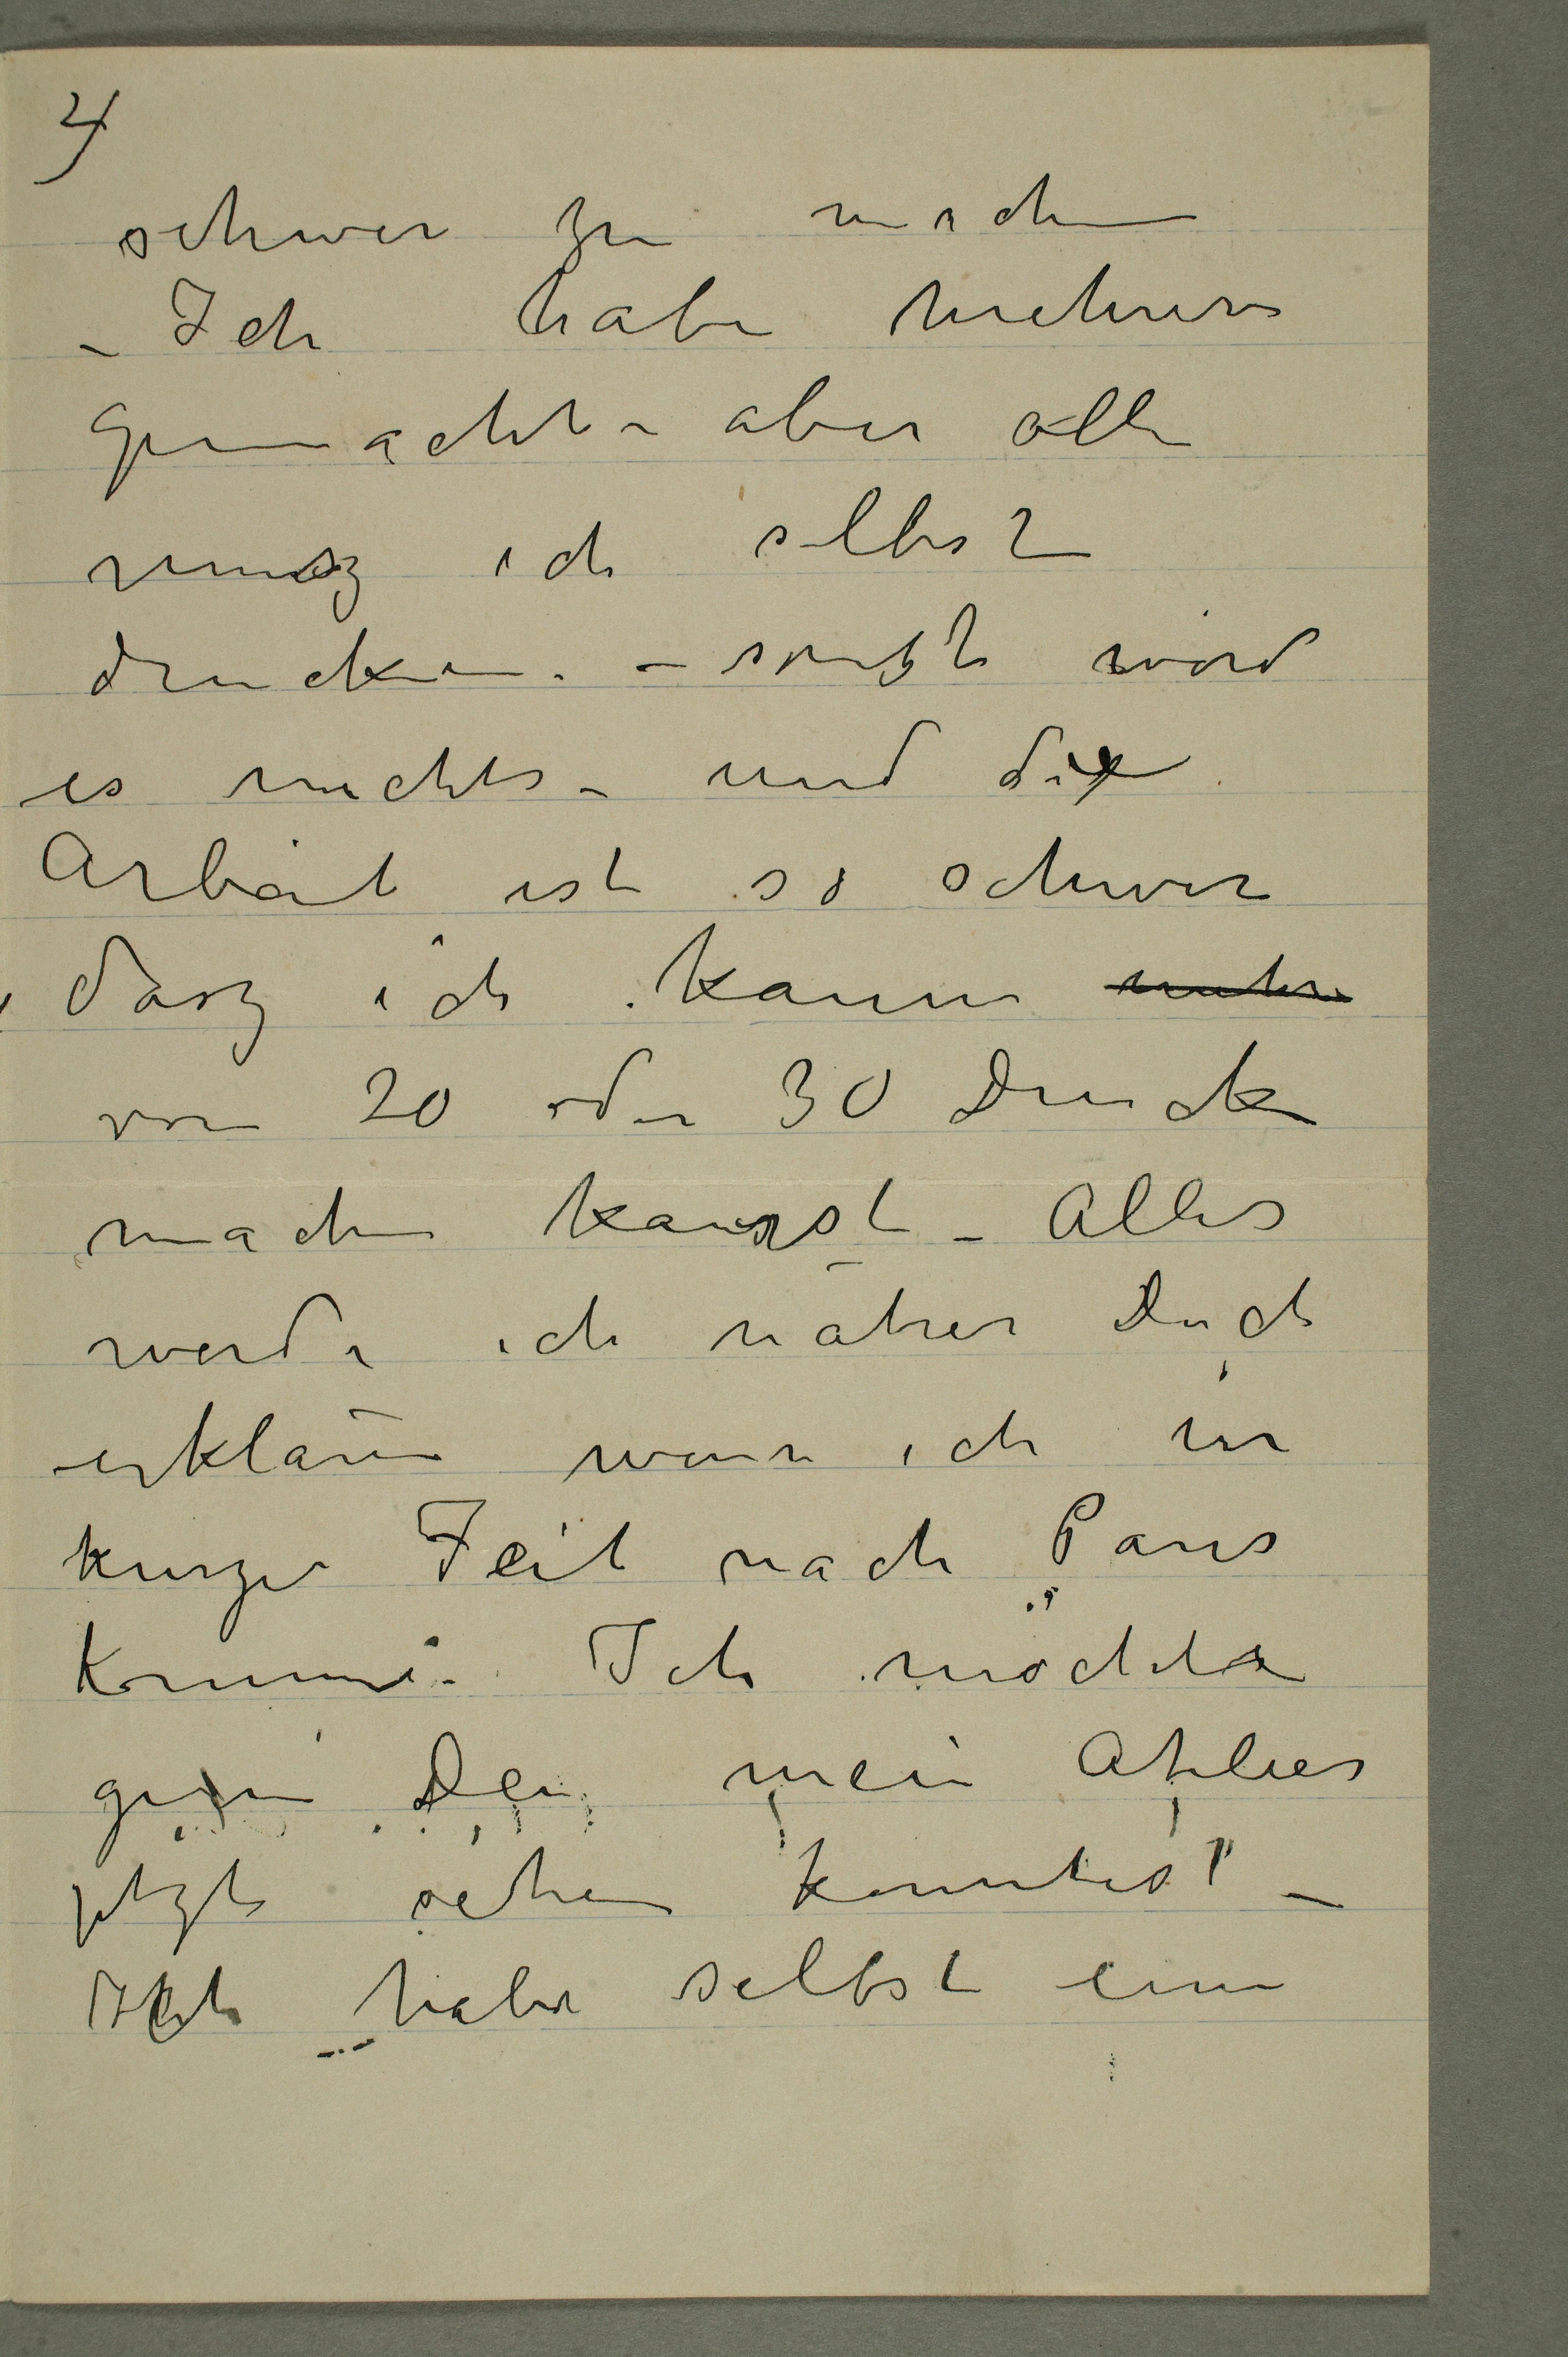 4
schwer zu machen
– Ich habe mehrere
gemacht – aber alle
musz ich selbst
drucken. – sonst wird
es nichts – und die
Arbeit ist so schwer
dasz ich kaum mehr
von 20 oder 30 Drucke
machen kannst – Alles
werde ich näher Dich
erklären wenn ich in
kurzer Zeit nach Paris
komme. Ich möchte
gern Du mein Atelier
jetzt sehen konntest –
Ich habe selbst eine